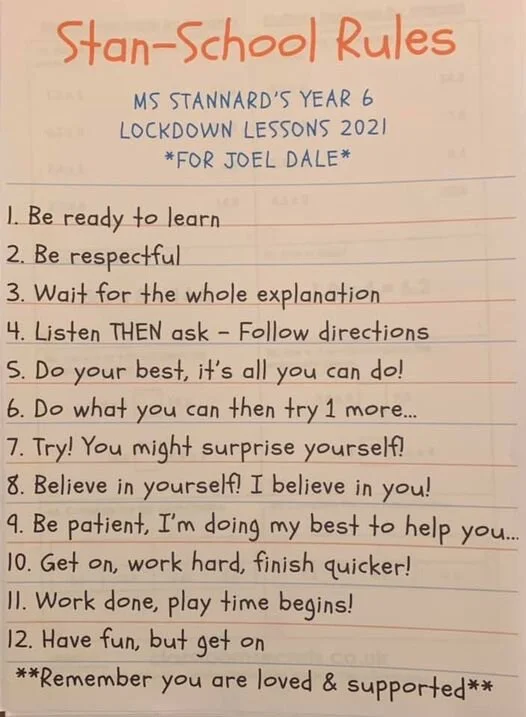 Stan-School Rules
MS STANNARD'S YEAR 6
LOCKDOWN LESSONS 2021
*FOR JOEL DALE*
1. Be ready to learn
2. Be respectful
3. Wait for the whole explanation
4. Listen THEN ask - Follow directions
5. Do your best, it's all you can do!
6. Do what you can then try 1 more...
7. Try! You might surprise yourself!
8. Believe in yourself! I believe in you!
9. Be patient, I'm doing my best to help you...
10. Get on, work hard, finish quicker!
11. Work done, play time begins!
12. Have fun, but get on
**Remember you are loved & supported**